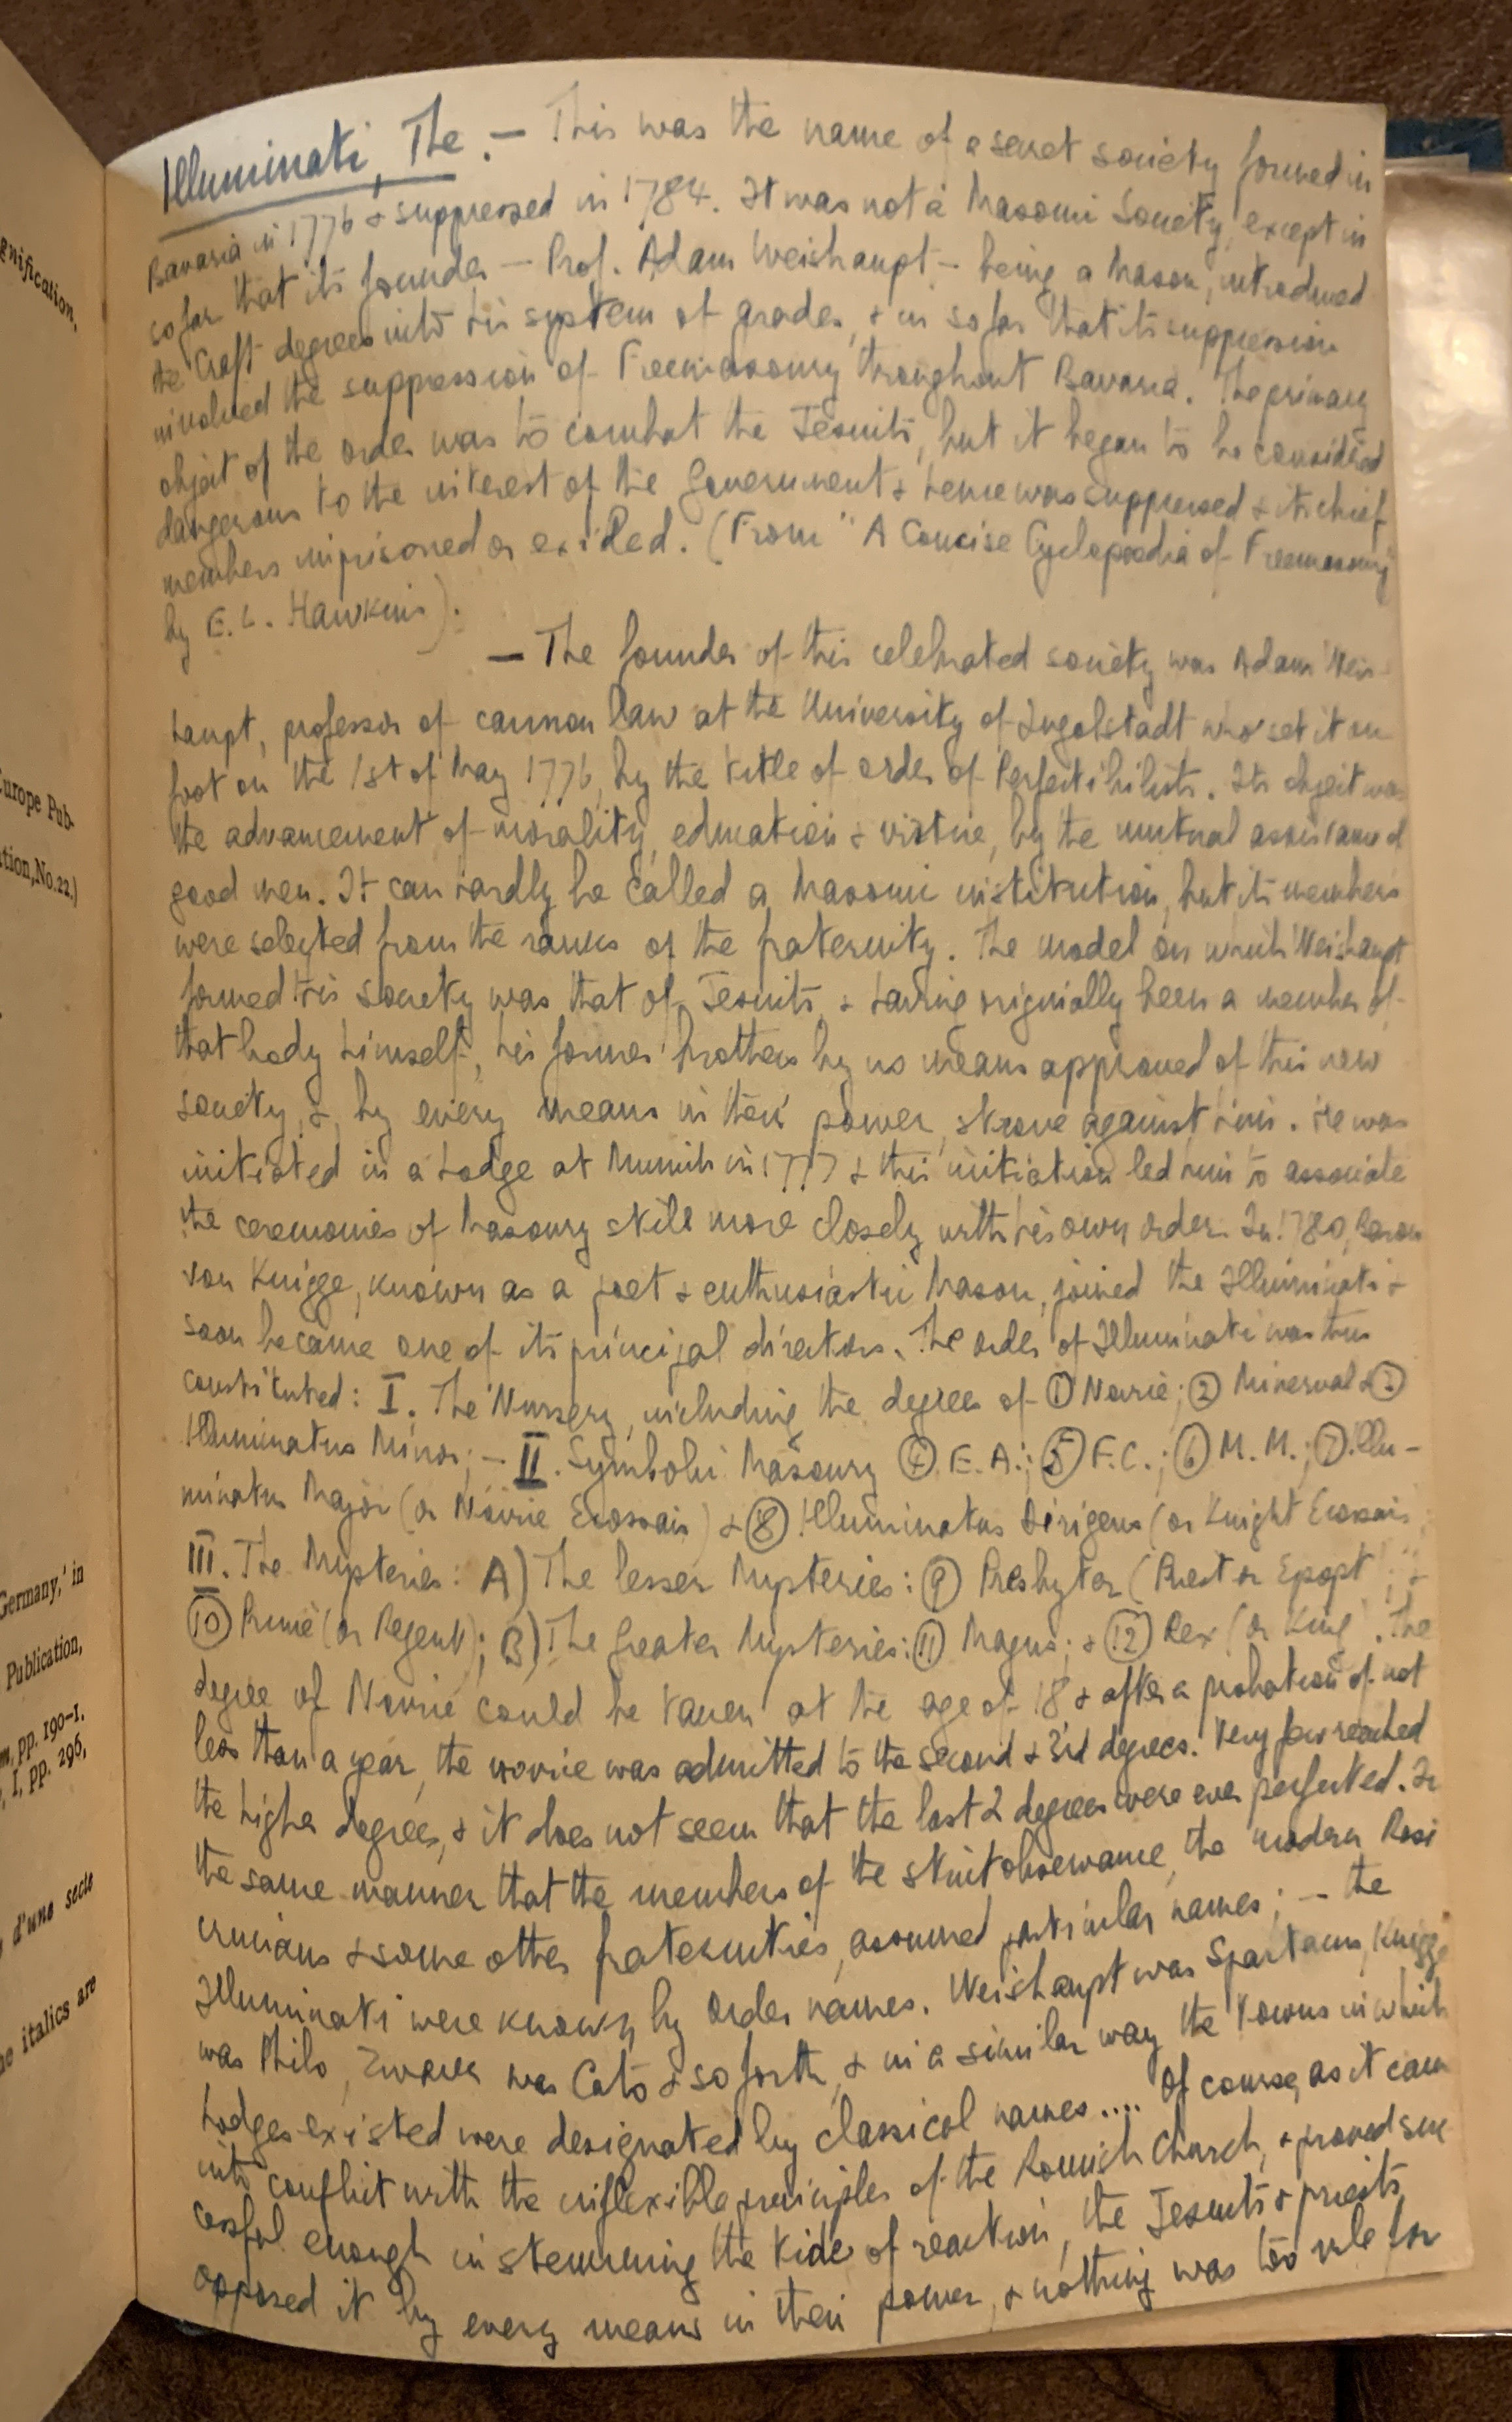 gnification,
urope Pub-
tion, No. 22.)
Germany,' in
Publication,
pp. 190-1.
I, pp. 296,
d'une secte
italics are
Illuminati, The. — This was the name of a secret society formed in
Bavaria in 1776 & suppressed in 1784. It was not a Masonic Society, except in
so far that its founder — Prof. Adam Weishaupt — being a Mason, introduced
the Craft degrees into his system of grades, & in so far that its suppression
involved the suppression of Freemasonry throughout Bavaria. The primary
object of the order was to combat the Jesuits, but it began to be considered
dangerous to the interest of the Government & hence was suppressed & its chief
members imprisoned or exiled. (From "A Concise Cyclopædia of Freemasonry"
by E. L. Hawkins).
— The founder of this celebrated society was Adam Weis-
haupt, professor of cannon law at the University of Ingolstadt who set it on
foot on the 1st of May 1776, by the title of order of Perfectibilists. Its object was
the advancement of morality, education & virtue, by the mutual assistance of
good men. It can hardly be called a Masonic institution, but its members
were selected from the ranks of the fraternity. The model on which Weishaupt
formed his society was that of Jesuits, & having originially been a member of
that body himself, his former brothers by no means approved of this new
society, &, by every means in their power, strove against him. He was
initiated in a Lodge at Munich in 1777 & this initiation led him to associate
the ceremonies of Masonry still more closely with his own order. In 1780, Baron
von Knigge, known as a poet & enthusiastic Mason, joined the Illuminati &
soon became one of its principal directors. The order of Illuminati was thus
constituted: I. The Nursery, including the degrees of ① Novice; ② Minerval & ③
Illuminatus Minor; — II. Symbolic Masonry ④ E. A.; ⑤ F. C.; ⑥ M. M.; ⑦ Illu-
minatus Major (or Novice Ecossais) & ⑧ Illuminatus Dirigens (or Knight Ecossais;
III. The Mysteries: A) The lesser Mysteries: ⑨ Presbyter (Priest or Epopt); &
⑩ Prince (or Regent); B) The Greater Mysteries: ⑪ Magus; & ⑫ Rex (or King). The
degree of Novice could be taken at the age of 18 & after a probation of not
less than a year, the novice was admitted to the second & 3rd degrees. Very few reached
the higher degrees, & it does not seem that the last 2 degrees were ever perfected. In
the same manner that the members of the strict observance, the modern Rosi
crucians & some other fraternities, assumed particular names; — the
Illuminati were known by order names. Weishaupt was Spartacus, Knigge
was Philo, Zwack was Cato & so forth, & in a similar way the towns in which
Lodges existed were designated by classical names .... Of course, as it came
into conflict with the inflexible principles of the Romish Church, & proved suc
cessful enough in stemming the tide of reaction, the Jesuits & priests
opposed it by every means in their power, & nothing was too vile for